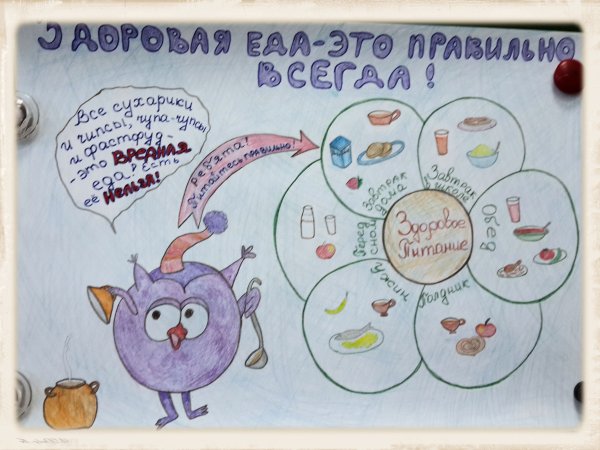 ЗДОРОВАЯ ЕДА-ЭТО ПРАВИЛЬНО
ВСЕГДА!
Все сухарики
и чипсы, чупа-чупсы
и фастфуд -
-это вредная
еда! Есть
её нельзя!
ребята!
питайтесь правильно!
Завтрак
дома
Завтрак
в школе
Обед
Полдник
Ужин
Перед
сном
Здоровое
Питание